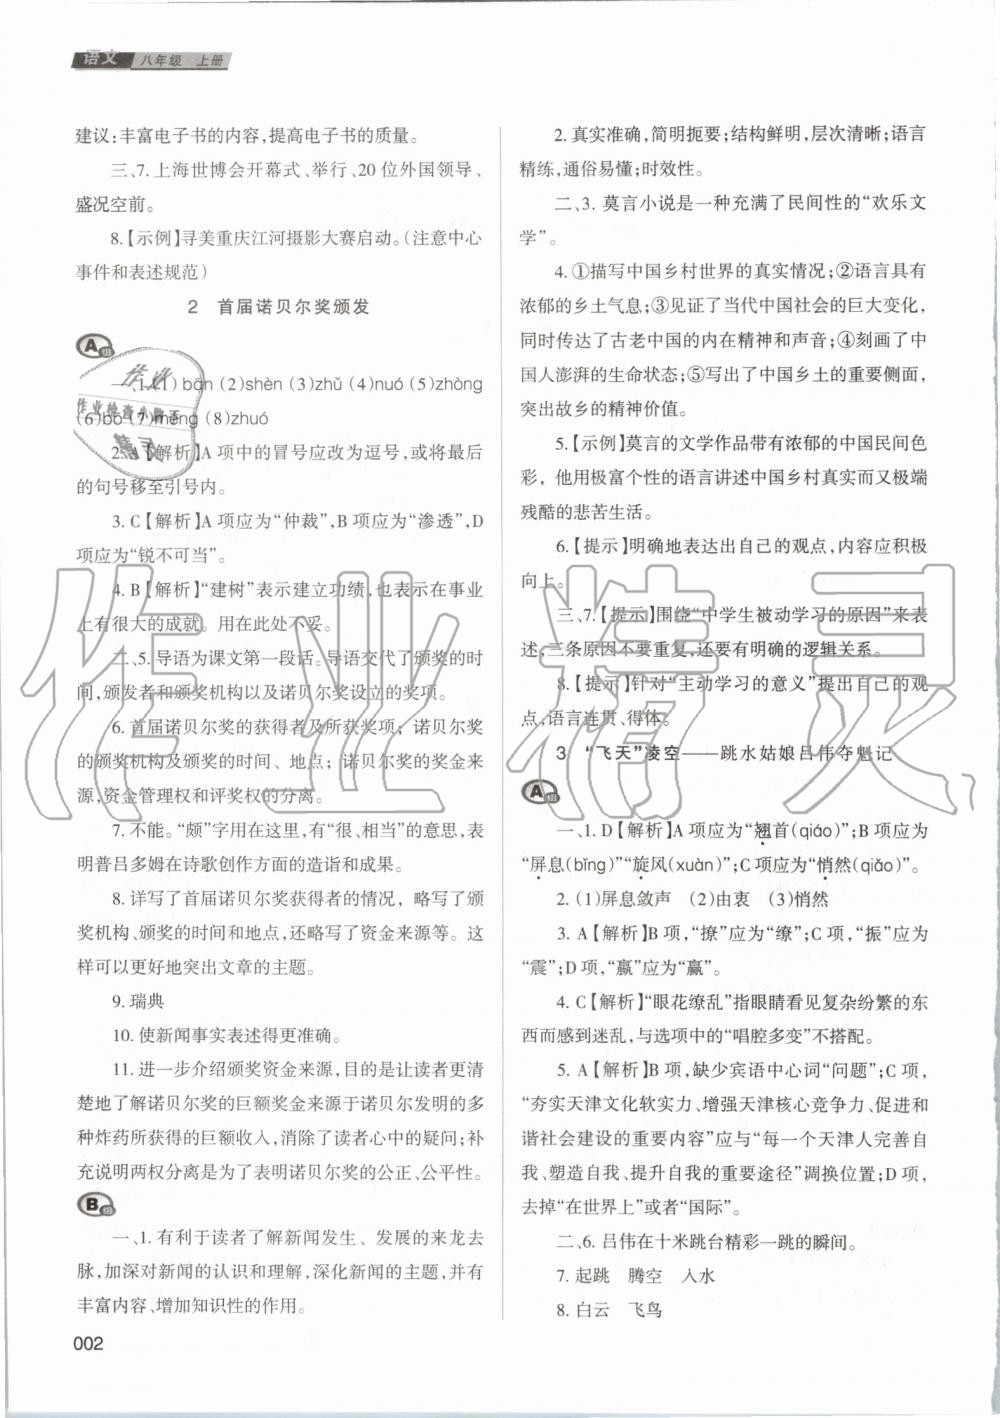 语文 八年级 上册
建议:丰富电子书的内容,提高电子书的质量。
三、7. 上海世博会开幕式、举行、20 位外国领导、
盛况空前。
8.【示例】寻美重庆江河摄影大赛启动。(注意中心
事件和表述规范)
2 首届诺贝尔奖颁发
A组
一、1.(1)bān (2)shèn (3)zhǔ (4)nuó (5)zhòng
(6)bó (7)méng (8)zhuó
2. A【解析】A 项中的冒号应改为逗号,或将后面
的句号移至引号内。
3. C【解析】A 项应为“仲裁”,B 项应为“渗透”,D
项应为“锐不可当”。
4. B【解析】“建树”表示建立功绩,也表示在事业
上有很大的成就。用在此处不妥。
二、5. 导语为课文第一段话。导语交代了颁奖的时
间,颁发者和颁奖机构以及诺贝尔奖设立的奖项。
6. 首届诺贝尔奖的获得者及所获奖项;诺贝尔奖
的颁奖机构及颁奖的时间、地点;诺贝尔奖的奖金来
源,资金管理权和评奖权的分离。
7. 不能。“颇”字用在这里,有“很、相当”的意思,表
明普吕多姆在诗歌创作方面的造诣和成果。
8. 详写了首届诺贝尔奖获得者的情况,略写了颁
奖机构、颁奖的时间和地点,还略写了资金来源等。这
样可以更好地突出文章的主题。
9. 瑞典
10. 使新闻事实表述得更准确。
11. 进一步介绍颁奖资金来源,可以让读者更清
楚地了解诺贝尔奖的巨额奖金来源于诺贝尔发明的多
种炸药所获得的巨额收入,消除了读者心中的疑问;补
充说明两权分离是为了表明诺贝尔奖的公正、公平性。
B组
一、1. 有利于读者了解新闻发生、发展的来龙去
脉,加深对新闻的认识和理解,深化新闻的主题,并有
丰富内容、增加知识性的作用。
002
2. 真实准确,简明扼要;结构鲜明,层次清晰;语言
精练,通俗易懂;时效性。
二、3. 莫言小说是一种充满了民间性的“欢乐文
学”。
4. ①描写中国乡村世界的真实情况;②语言具有
浓郁的乡土气息;③见证了当代中国社会的巨大变化,
同时传达了古老中国的内在精神和声音;④刻画了中
国人澎湃的生命状态;⑤写出了中国乡土的重要侧面,
突出故乡的精神价值。
5.【示例】莫言的文学作品带有浓郁的中国民间色
彩，他用极富个性的语言讲述中国乡村真实而又极端
残酷的悲苦生活。
6.【提示】明确地表达出自己的观点,内容应积极
向上。
三、7.【提示】围绕“中学生被动学习的原因”来表
述,三条原因不要重复,还要有明确的逻辑关系。
8.【提示】针对“主动学习的意义”提出自己的观
点,语言连贯、得体。
3 “飞天”凌空——跳水姑娘吕伟夺魁记
A组
一、1. D【解析】A 项应为“翘首(qiáo)”;B 项应为
“屏息(bǐng)”“旋风(xuàn)”;C 项应为“悄然(qiǎo)”。
2. (1)屏息敛声 (2)由衷 (3)悄然
3. A【解析】B 项,“撩”应为“缭”;C 项,“振”应为
“震”;D 项,“嬴”应为“赢”。
4. C【解析】“眼花缭乱”指眼睛看见复杂纷繁的东
西而感到迷乱,与选项中的“唱腔多变”不搭配。
5. A【解析】B 项,缺少宾语中心词“问题”;C 项,
“夯实天津文化软实力、增强天津核心竞争力、促进和
谐社会建设的重要内容”应与“每一个天津人完善自
我、塑造自我、提升自我的重要途径”调换位置;D 项,
去掉“在世界上”或者“国际”。
二、6. 吕伟在十米跳台精彩一跳的瞬间。
7. 起跳 腾空 入水
8. 白云 飞鸟
作业精灵
作业检查小助手